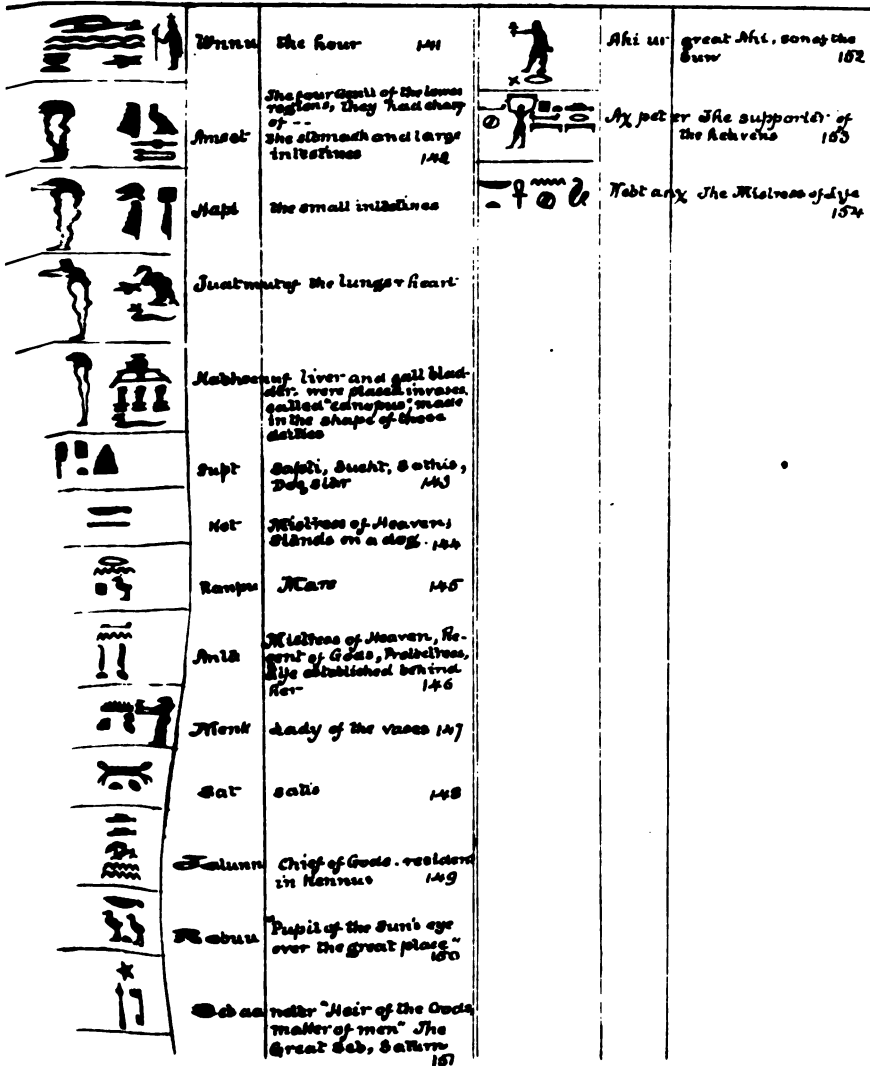 Wnnu the hour 141
The four Genii of the lower
regions, they had charg
of --
Amset the stomach and large
intestines 142
Hapi the small intestines
Tuatmutef the lungs + heart
Kabhsenuf liver and gall blad-
der. were placed in vases,
called "canopus", made
in the shape of these
deities
Supt Sapti, Susht, Sothis,
Dog star 143
Ket Mistress of Heaven,
stands on a dog. 144
Ranpu Mars 145
Anta Mistress of Heaven, Re-
gent of Gods, Protectress,
life established behind
her 146
Menk Lady of the vases 147
Sat Satis 148
Chief of Gods. resident
in Kennus 149
Rebuu "Pupil of the Sun's eye
over the great place"
150
Seb aa neter "Heir of the Gods,
matter of men" The
Great Seb, Saturn
151
Ahi ur great Ahi, son of the
Sun 152
Ax pet er The supporter of
the heavens 153
Nebt anx The Mistress of life
154